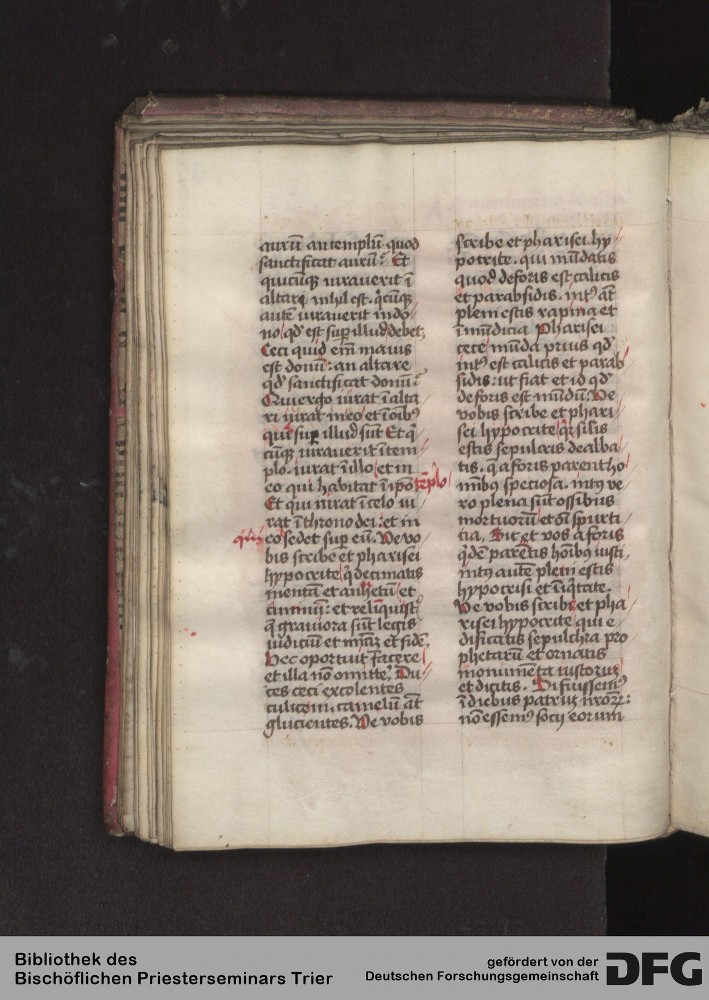 aurū an templū quod
sanctificat aurū? Et
quicūq iuraverit ī
altari nihil est. q̄cūq
autē iuraverit in do
no qd̄ est sup illud debet
Ceci quid em̄ maius
est donū: an altare
qd̄ sanctificat donū?
Qui ergo iurat ī alta
ri iurat in eo et ī oīb9
que sup illud sūt Et q̄
cūq iuraverit ī tem
plo. iurat ī illo et in
eo qui habitat ī ipo templo
Et qui iurat ī celo iu
rat ī throno dei: et in
eo sedet sup eū. Ve vo
bis scribe et pharisei
hypocrite q̄ decimatis
mentā et anhetū et
ciminū: et reliquist9
q̄ graviora sūt legis
iudiciū et mīaz et fidē.
Hec oportuit facere
et illa nō omitte. Du
ces ceci excolentes
culicem. camelū āt
glucientes. Ve vobis
scribe et pharisei hy
potrite. qui mūdatis
quod deforis est calicis
et parabsidis. int9 āt
pleni estis rapina et
īmūdicia Pharisei
cece mūda prius qd̄
int9 est calicis et parab
sidis: ut fiat et id qd̄
deforis est mūdū. Ve
vobis scribe et phari
sei hypocrite qr siles
estis sepulcris dealba
tis. q̄ a foris parent ho
mībus speciosa. int9 ve
ro plena sūt ossibus
mortuorū et oī spurci
cia. Sic et vos a foris
q̄dē parētis hoībus iusti
int9 autē pleni estis
hypocrisi et īiq̄tate.
Ve vobis scribe et pha
risei hypocrite qui e
dificatis sepulchra pro
phetarū et ornatis
monumēta iustorum
et dicitis. Si fuissem9
ī diebus patrum nr̄orum:
nō essem9 socij eorum
Bibliothek des
Bischöflichen Priesterseminars Trier
gefördert von der
Deutschen Forschungsgemeinschaft
DFG